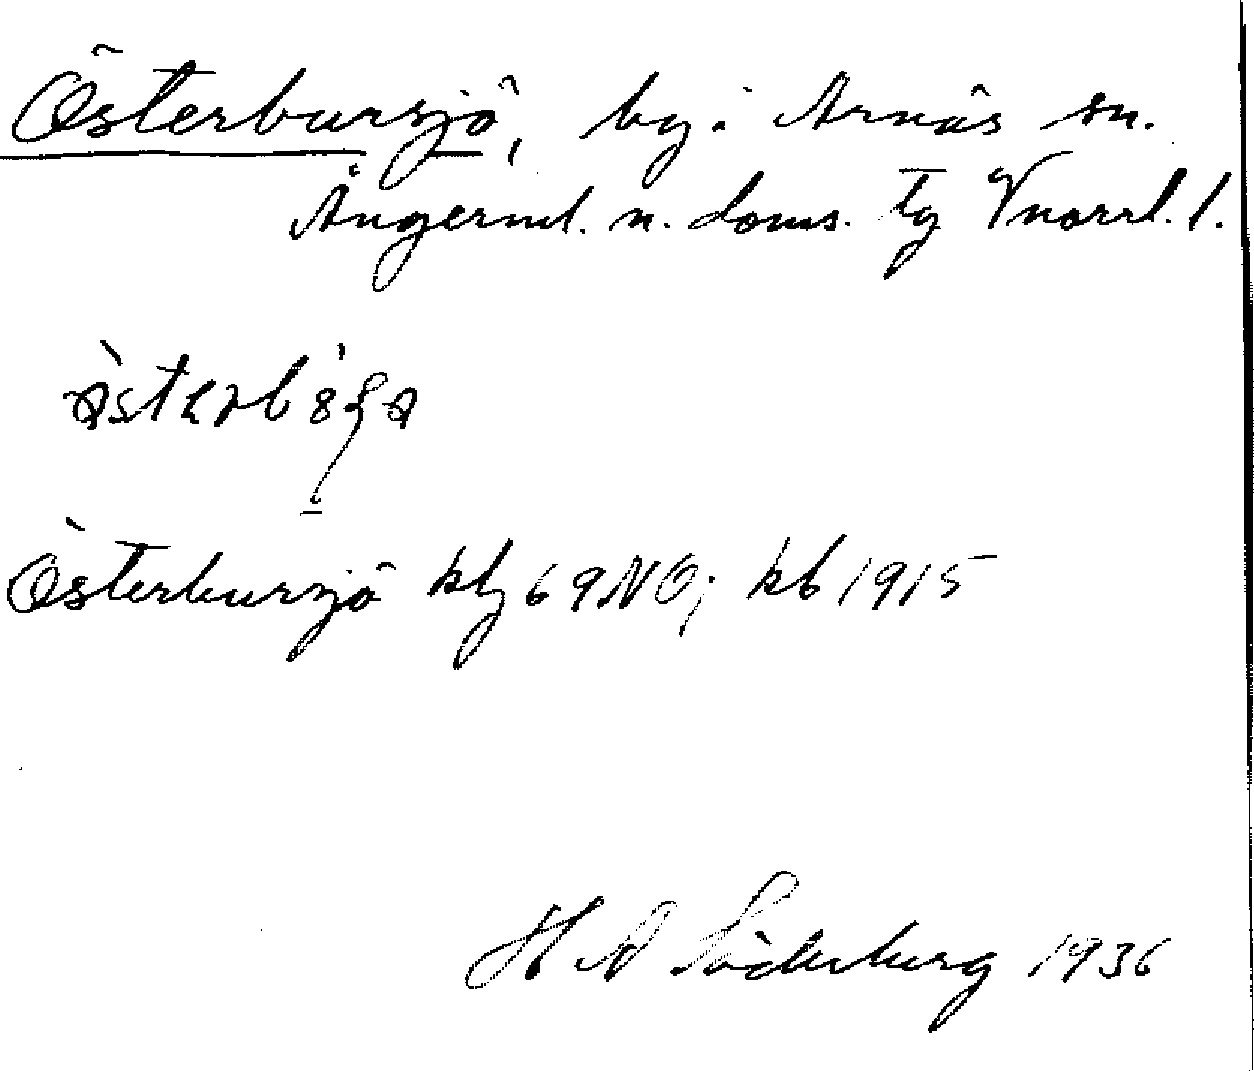 Österbursjö, by i Arnäs sn.
Ångerml. n. doms. tg Vnorrl. l.
Österbursjö kbl 69 NO; kb 1915
H A Söderberg 1936